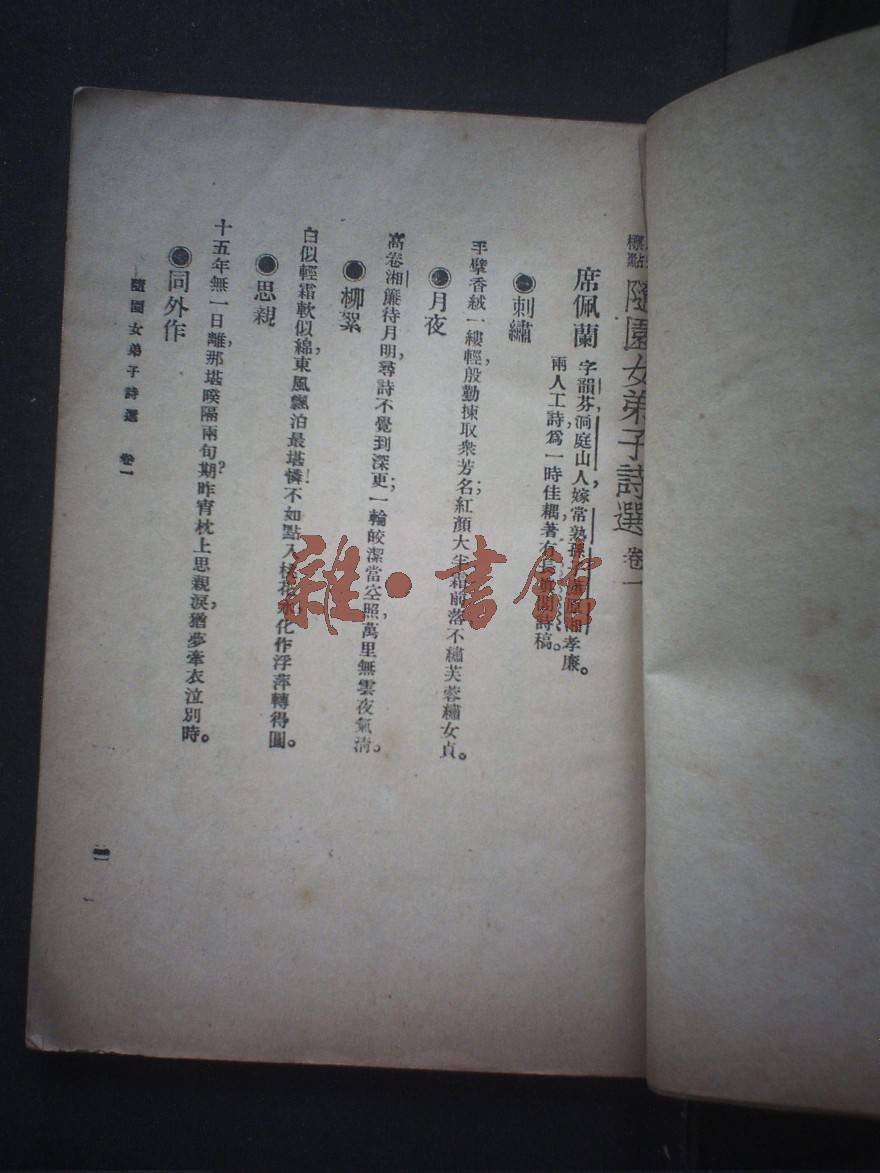 標點 隨園女弟子詩選 卷一
席佩蘭 字韻芬，洞庭山人，嫁常熟孫子瀟原湘孝廉。
兩人工詩，爲一時佳耦，著有長眞閣詩稿。
●刺繡
手擘香絨一縷輕，殷勤揀取衆芳名；紅顏大半霜前落，不繡芙蓉繡女貞。
●月夜
高卷湘簾待月明，尋詩不覺到深更；一輪皎潔當空照，萬里無雲夜氣淸。
●柳絮
白似輕霜軟似綿，東風飄泊最堪憐！不如點入桃花水，化作浮萍轉得圓。
●思親
十五年無一日離，那堪暌隔兩旬期？昨宵枕上思親淚，猶夢牽衣泣別時。
●同外作
隨園女弟子詩選 卷一
一
雜·書館